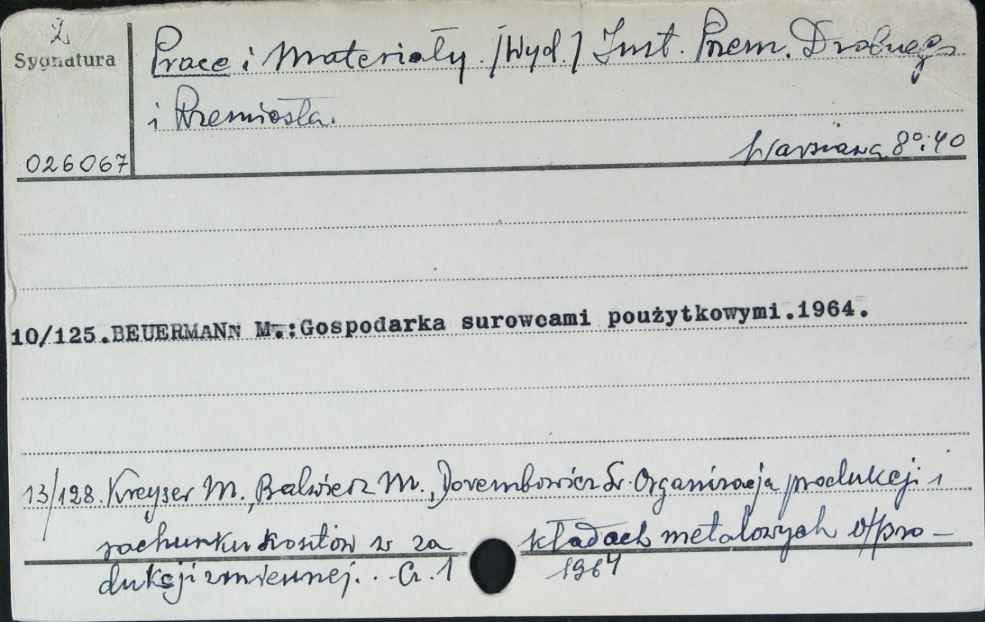 Ż
Sygnatura
026067
Prace i Materiały. /Wyd./ Inst. Przem. Drobnego
i Rzemiosła.
Warszawa 8º:40
10/125.BEUERMANN M.:Gospodarka surowcami poużytkowymi.1964.
13/128. Kreyser M., Balwierz M., Dorembowicz Śr. Organizacja produkcji i
rachunku kosztów w za kładach metalowych o/pro-
dukcji zmiennej... Cz. 1 1964